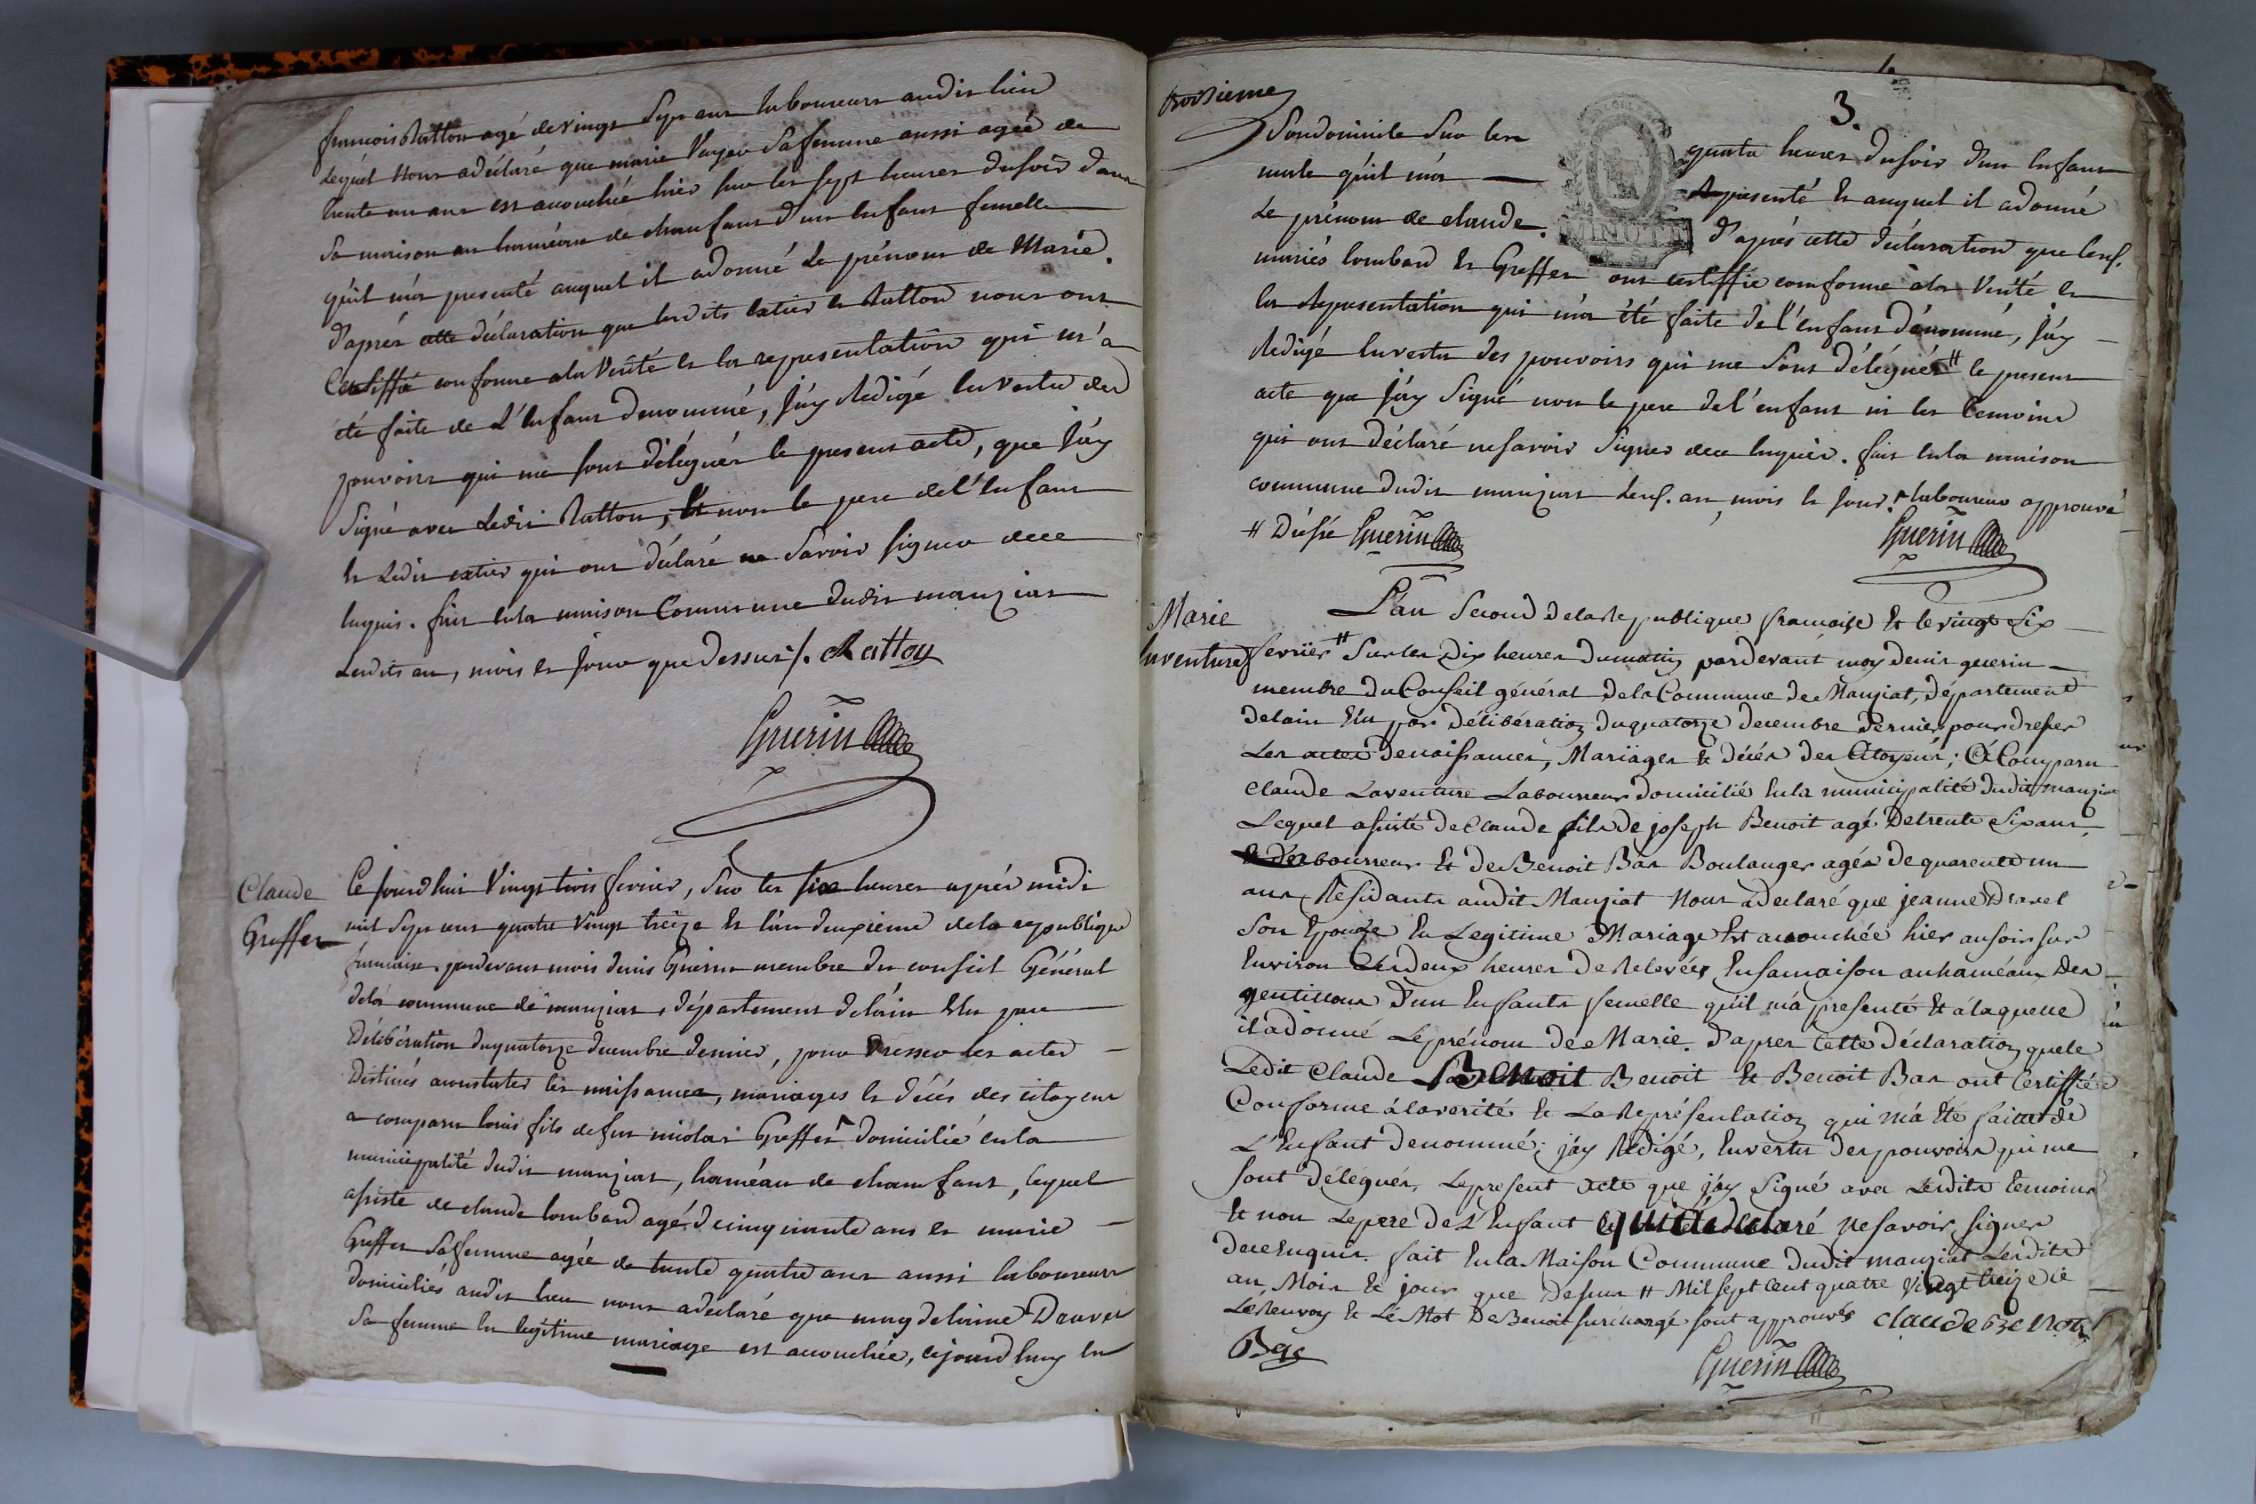 françois Ratton agé de vingt sept ans laboureurs audit lieu
Lequel Nous a déclaré que marie Voyer Sa femme aussi agée de
trente un ans est acouchée hier sur les sept heures du soir dans
Sa maison au haméau de chamfant d'un Enfant femelle
qu'il m'a presenté auquel il a donné Le prénom de Marie.
d'aprés cette déclaration que lesdits catier et Ratton nous ont
Certiffié conforme a la Vérité et la representation qui m'a
été faite de L'Enfant denommé, J'ay Redigé En vertu des
pouvoirs qui me sont délégués le present acte, que J'ay
Signé avec Ledit Ratton, Et non le pere de L'Enfant
et Ledit catier qui ont déclaré ne Savoir signer de ce
Enquis. fait en la maison Commune dudit manziat
Lesdits an, mois et jour que dessus /. Rattou
Guerin
Claude
Greffet
Ce Jourd'hui Vingt trois fevrier, Sur les six heures aprés midi
mil sept cent quatre Vingt treize et l'an deuxieme de la republique
francaise, pardevant mois denis Guerin membre du conseil Général
de la commune de manziat, département de l'ain Elu par
Délibération du quatorze decembre dernier, pour dresser les actes
destinés a constater les naissances, mariages et décés des citoyens
a comparu louis fils de feu nicolas Greffet domicilié en la
municipalité dudit manziat, haméau de chamfant, lequel
assisté de claude lombard agé de cinquante ans et marie
Greffet Sa femme agée de trente quatre ans aussi laboureurs
domiciliés audit lieu nous a declaré que magdelaine Dravet
Sa femme en legitime mariage est acouchée, cejourd'huy les
troisieme
3.
Son domicile Sur les
quatre heures du soir d'un Enfant
male qu'il m'a
Representé et auquel il a donné
Le prénom de claude.
d'aprés cette déclaration que les
mariés lombard et Greffet ont certiffié conforme à la Vérité et
la Representation qui m'a été faite de l'enfant dénommé, J'ay
Redigé En vertu des pouvoirs qui me Sont délégués # le present
acte que J'ay Signé non le pere de l'enfant ni les temoins
qui ont déclaré ne savoir Signer de ce Enquis. fait En la maison
commune dudit manziat les an, mois et Jour. laboureur approuvé
# Guerin
Guerin
Marie
Laventure
L'an Second de la Republique francaise et le vingt Six
fevrier # Sur les Dix heures du matin pardevant moy Denis guerin
membre du Conseil général de la Commune de Manziat, Département
de lain Elu par Délibération du quatorze decembre dernier pour dresser
Les actes de naissances, Mariages & décés des Citoyens; A Comparu
Claude Laventure Laboureur domicilié En la municipalité dudit manziat
Lequel assisté de Claude fils de joseph Benoit agé De trente Six ans
Laboureur Et de Benoit Bas Boulanger agés de quarente un
ans Résidants audit Manziat Nous a declaré que jeanne Dravet
Son Epouse En Legitime Mariage Est acouchée hier au soir sur
Environ Les deux heures de Relevées En sa maison au haméau Des
gentillons d'un Enfants femelle qu'il m'a presenté Et a laquelle
il a donné Le prénom de Marie. D'apres cette Déclaration que le
Ledit Claude Benoit Benoit Et Benoit Bas ont Certiffiée
Conforme à la verité & La Représentation qui m'a été faitte de
L'Enfant Denommé; j'ay Rédigé, En vertu des pouvoirs qui me
sont délégués, Le present acte que j'ay Signé avec Lesdits temoins
Et non Le pere de L'Enfant qui a déclaré ne savoir signer
de ce Enquis. fait En la Maison Commune dudit manziat Lesdits
an Mois & jour que Dessus # Mil sept cent quatre vingt treize
Le Renvoy & Le Mot De Benoit surchargé sont approuvés claude Benoit
Bas
Guerin